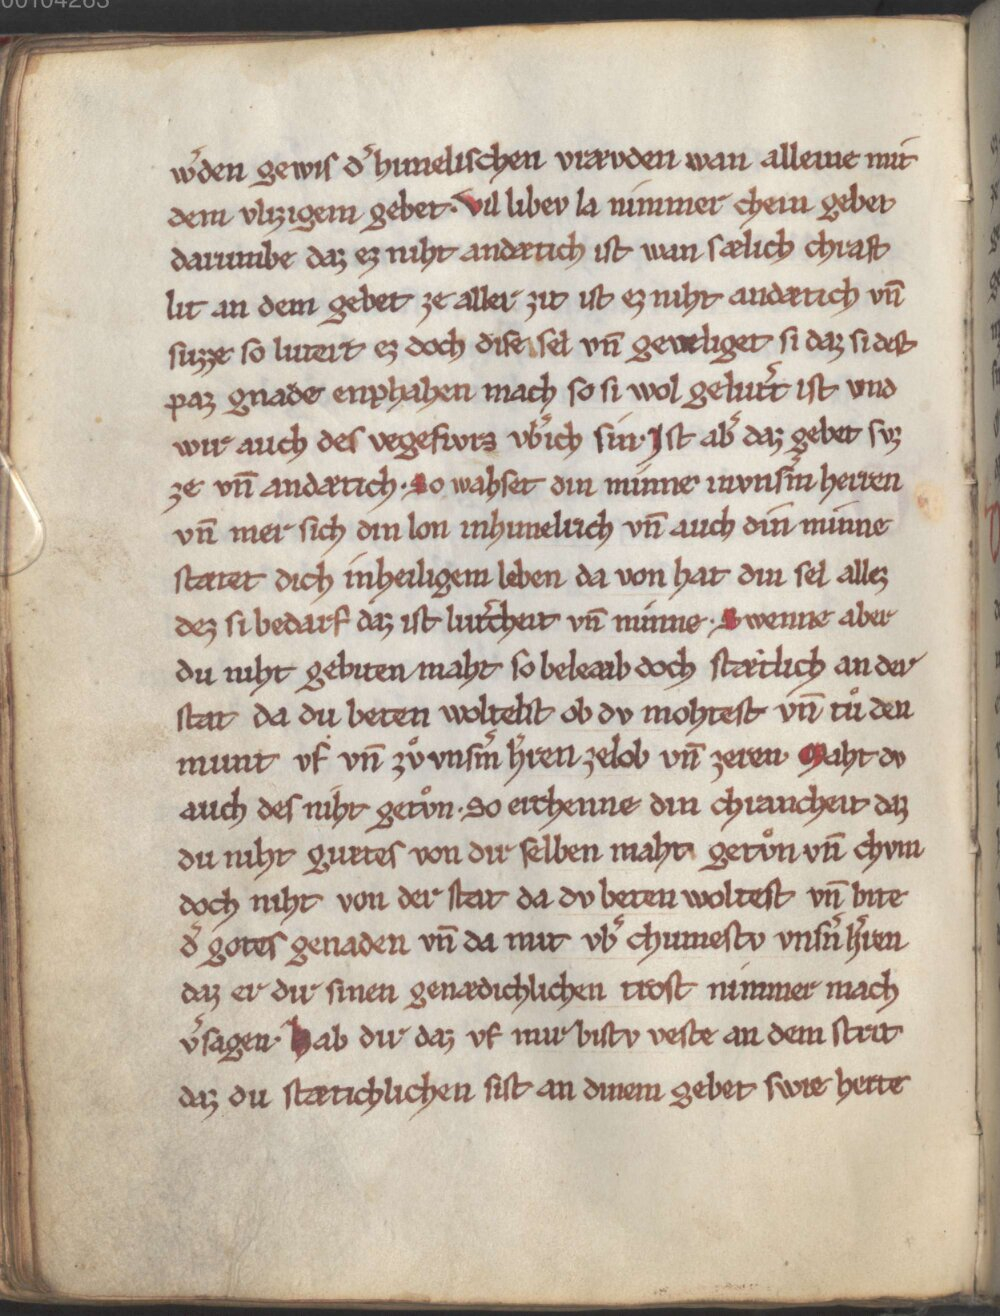 00104263
wͤden gewis dˢ himelischen vrævden wan alleine mit
dem vlizigem gebet. Vil libev la nimmer chein gebet
darumbe daz ez niht andætich ist wan sælich chraft
lit an dem gebet ze aller zit ist ez niht andætich vn̄
suzze so lutert ez doch dise sel vn̄ geveliget si daz si dest
paz gnade enphahen mach so si wol gelutˢt ist vnd
wir auch des vegefivrs vbˢich sin. Ist abˢ daz gebet svz
ze vn̄ andætich. So wahset din minne in vnsˢm herren
vn̄ mer sich din lon inhimelrich vn̄ auch din minne
stætet dich inheiligem leben da von hat din sel allez
dez si bedarf daz ist lutˢcheit vn̄ minne. Swenne aber
du niht gebiten maht so beleaib doch stætlich an der
stat da du beten woltelst ob dv mohtest vn̄ tuͦ den
munt vf vn̄ zvͦ vnsˢm hˢren zelob vn̄ zeren. Maht dv
auch des niht getvͦn. So erchenne din chrancheit daz
du niht gutes von dir selben maht getvͦn vn̄ chvm
doch niht von der stat da dv beten woltest vn̄ bite
dˢ gotes genaden vn̄ da mit vbˢ chumestv vnsˢn hˢren
daz er dir sinen genædichlichen trost nimmer mach
vˢsagen. Hab dir daz vf nur bistv veste an dem strit
daz du stætichlichen sist an dinem gebet swie herte